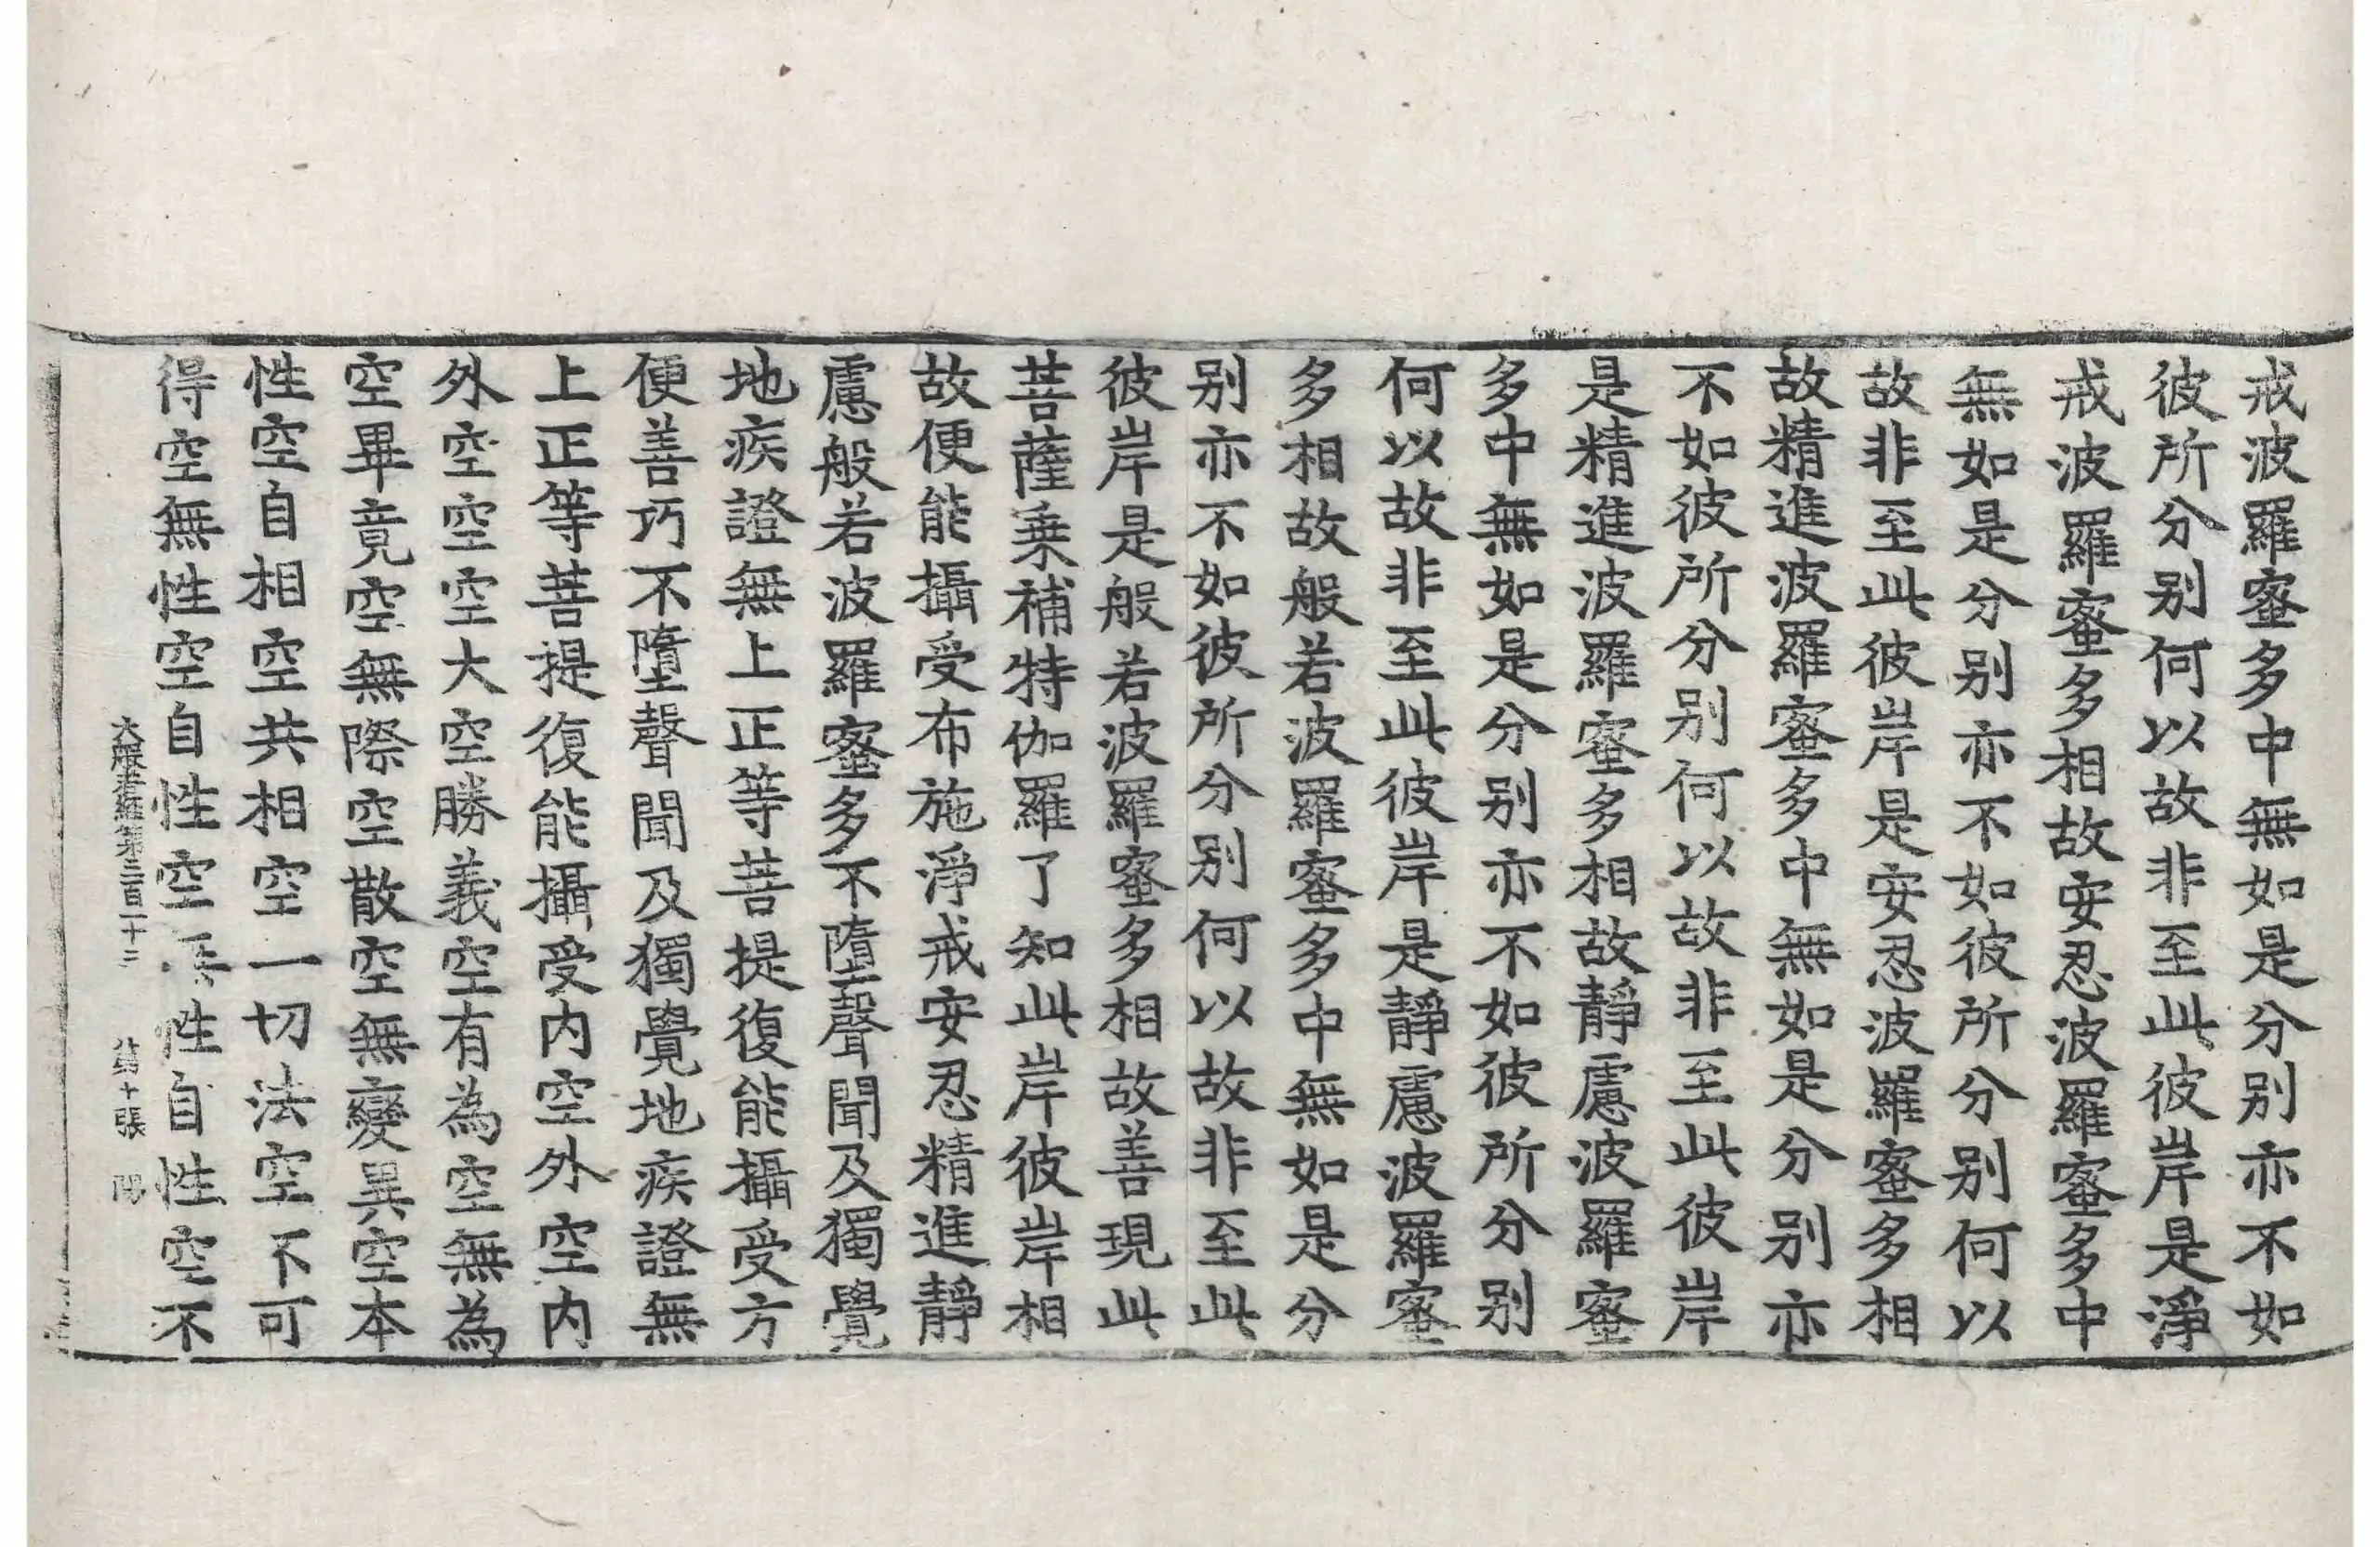 戒波羅蜜多中無如是分別亦不如
彼所分別何以故非至此彼岸是淨
戒波羅蜜多相故安忍波羅蜜多中
無如是分別亦不如彼所分別何以
故非至此彼岸是安忍波羅蜜多相
故精進波羅蜜多中無如是分別亦
不如彼所分別何以故非至此彼岸
是精進波羅蜜多相故靜慮波羅蜜
多中無如是分別亦不如彼所分別
何以故非至此彼岸是靜慮波羅蜜
多相故般若波羅蜜多中無如是分
別亦不如彼所分別何以故非至此
彼岸是般若波羅蜜多相故善現此
菩薩乗補特伽羅了知此岸彼岸相
故便能攝受布施淨戒安忍精進靜
慮般若波羅蜜多不墮聲聞及獨覺
地疾證無上正等菩提復能攝受方
便善巧不墮聲聞及獨覺地疾證無
上正等菩提復能攝受內空外空內
外空空空大空勝義空有為空無為
空畢竟空無際空散空無變異空本
性空自相空共相空一切法空不可
得空無性空自性空性自性空不
大般若經第三百一十三 第十張